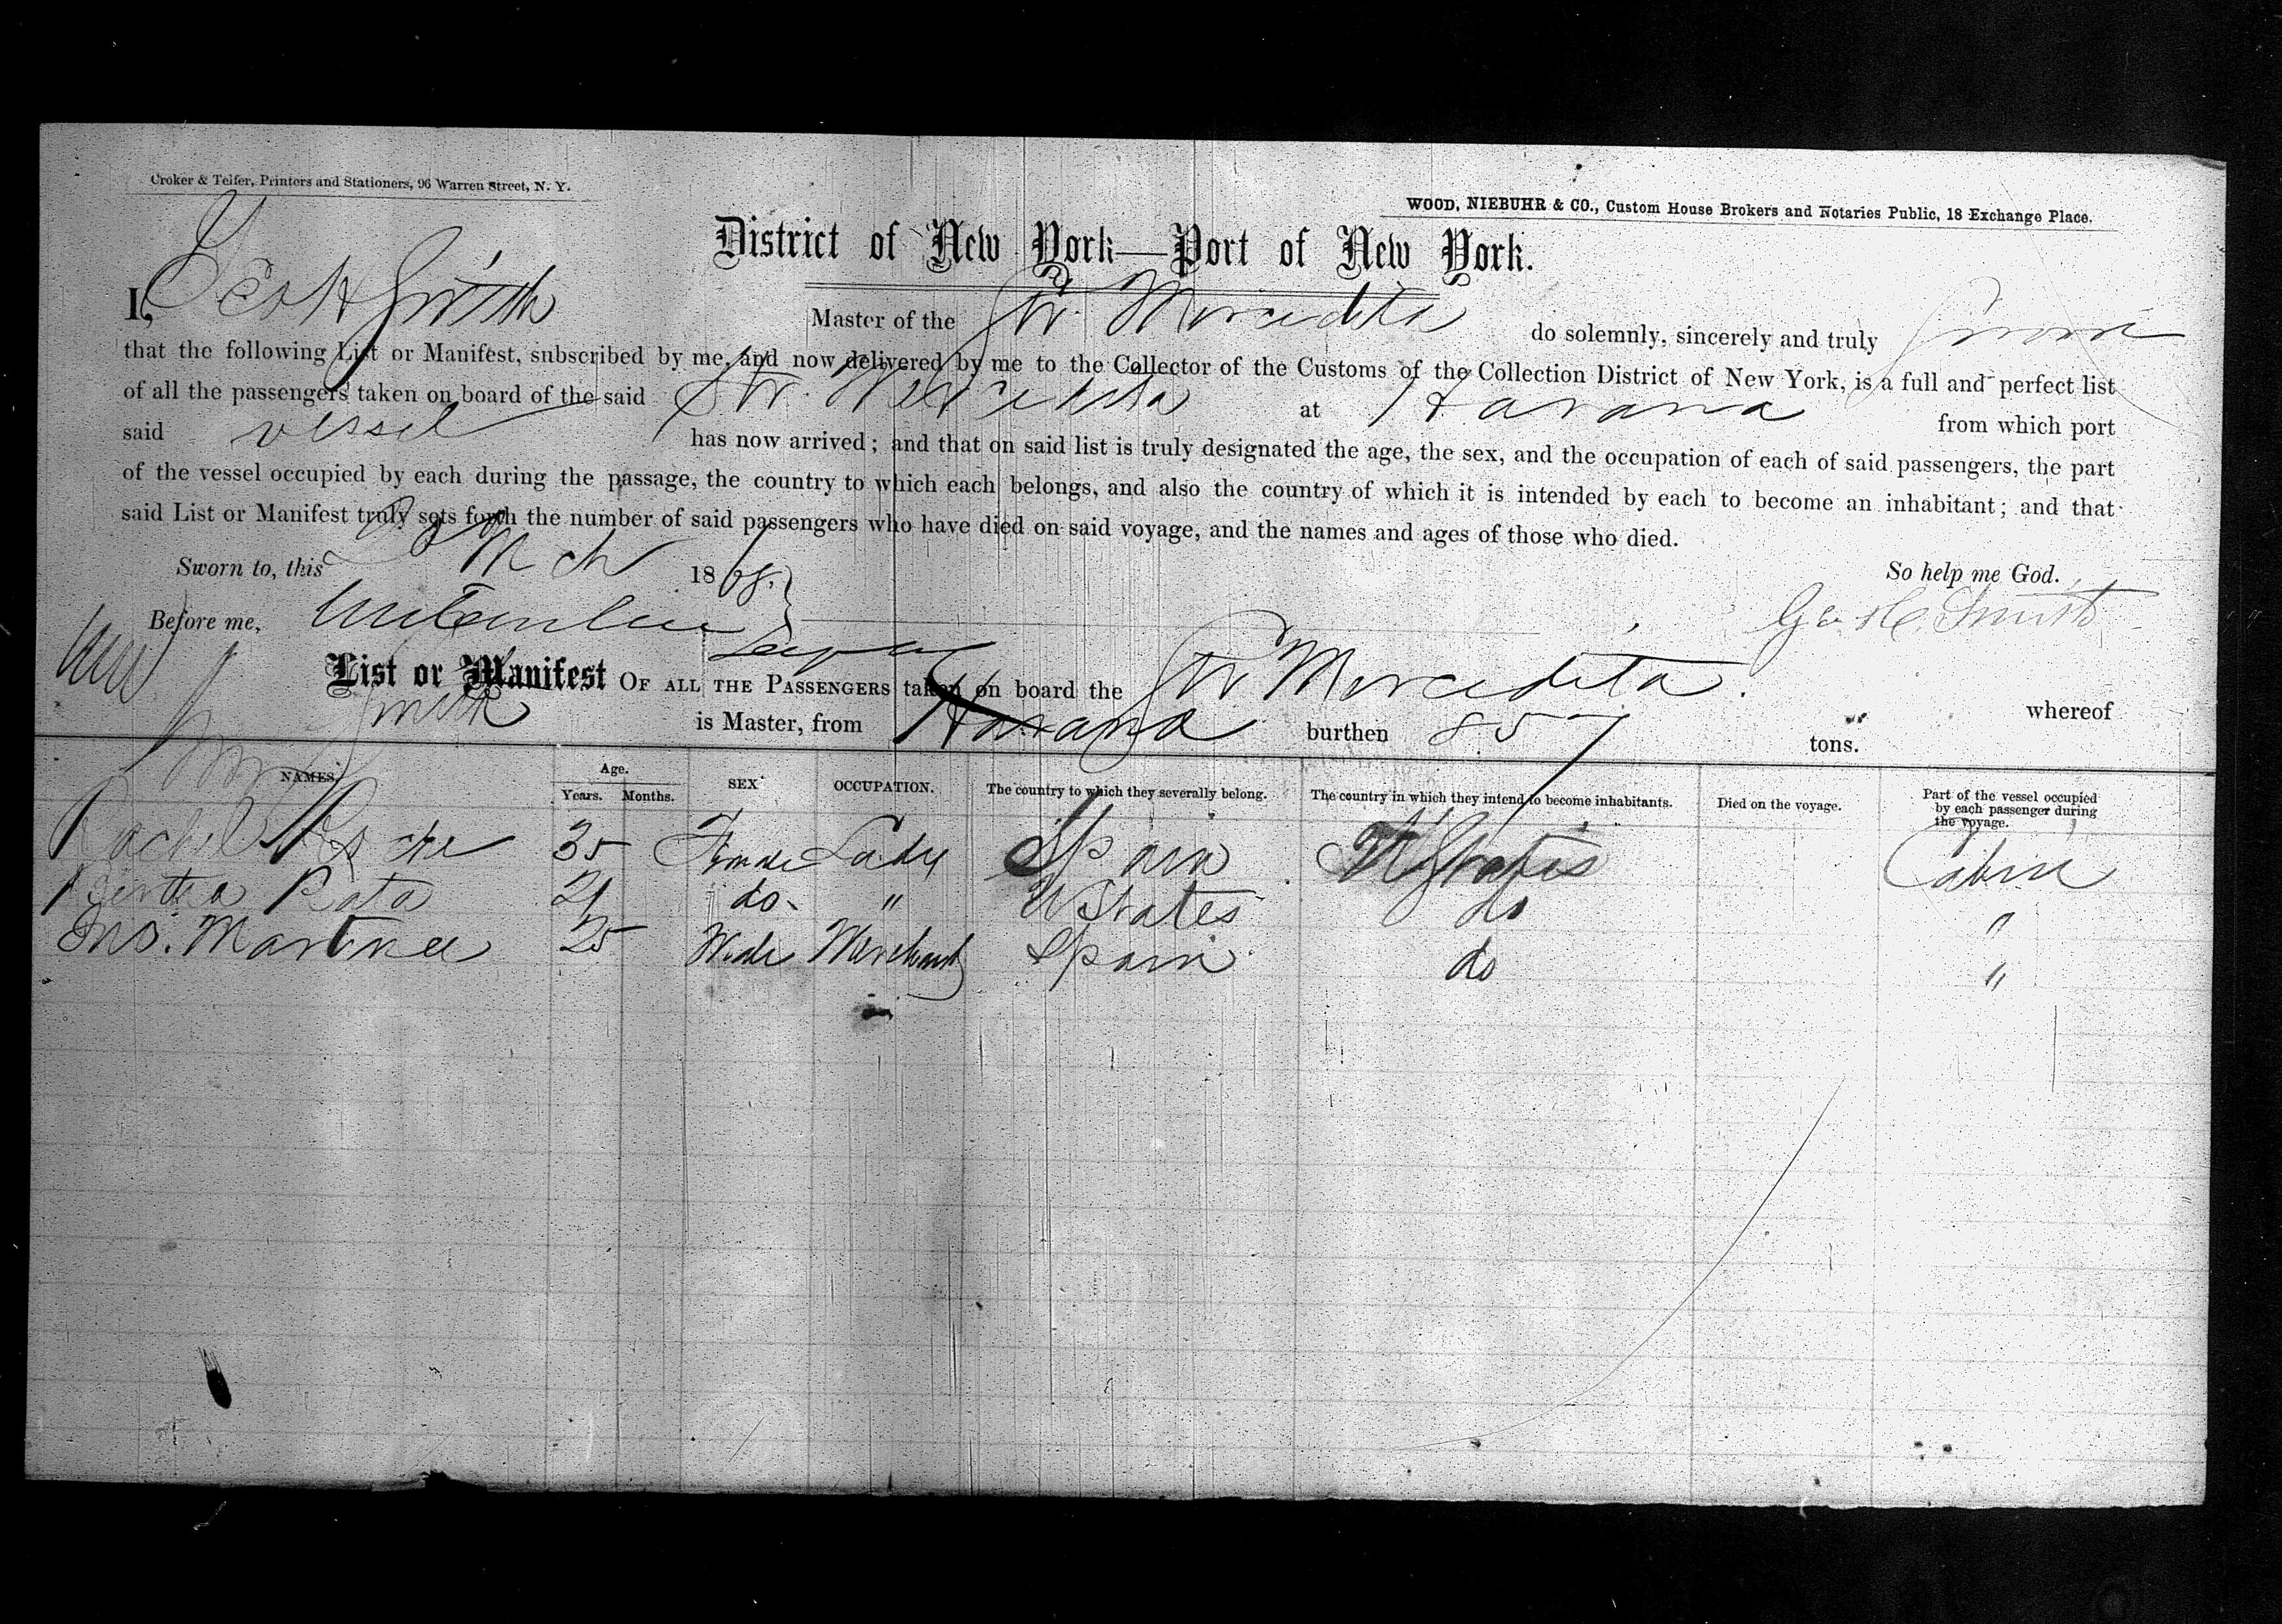 Croker & Teifer, Printers and Stationers, 96 Warren Street, N. Y.
WOOD, NIEBUHR & CO., Custom House Brokers and Notaries Public, 18 Exchange Place.
District of New York—Port of New York.
I, Geo H Smith Master of the Str. Mercedita do solemnly, sincerely and truly swear
that the following List or Manifest, subscribed by me, and now delivered by me to the Collector of the Customs of the Collection District of New York, is a full and perfect list
of all the passengers taken on board of the said Str. Mercedita at Havana from which port
said vessel has now arrived; and that on said list is truly designated the age, the sex, and the occupation of each of said passengers, the part
of the vessel occupied by each during the passage, the country to which each belongs, and also the country of which it is intended by each to become an inhabitant; and that
said List or Manifest truly sets forth the number of said passengers who have died on said voyage, and the names and ages of those who died.
Sworn to, this Mch 1868. So help me God.
Before me, Geo H. Smith
List or Manifest OF ALL THE PASSENGERS taken on board the Str Mercedita. whereof
Smith is Master, from Havana burthen 857 tons.
NAMES. Age. Years. Months. SEX OCCUPATION. The country to which they severally belong. The country in which they intend to become inhabitants. Died on the voyage. Part of the vessel occupied by each passenger during the voyage.
Rachel 35 Female Lady Spain U States Cabin
Bertha Rata 21 do. " U States do "
Jno. Martinez 25 Male Merchant Spain do "